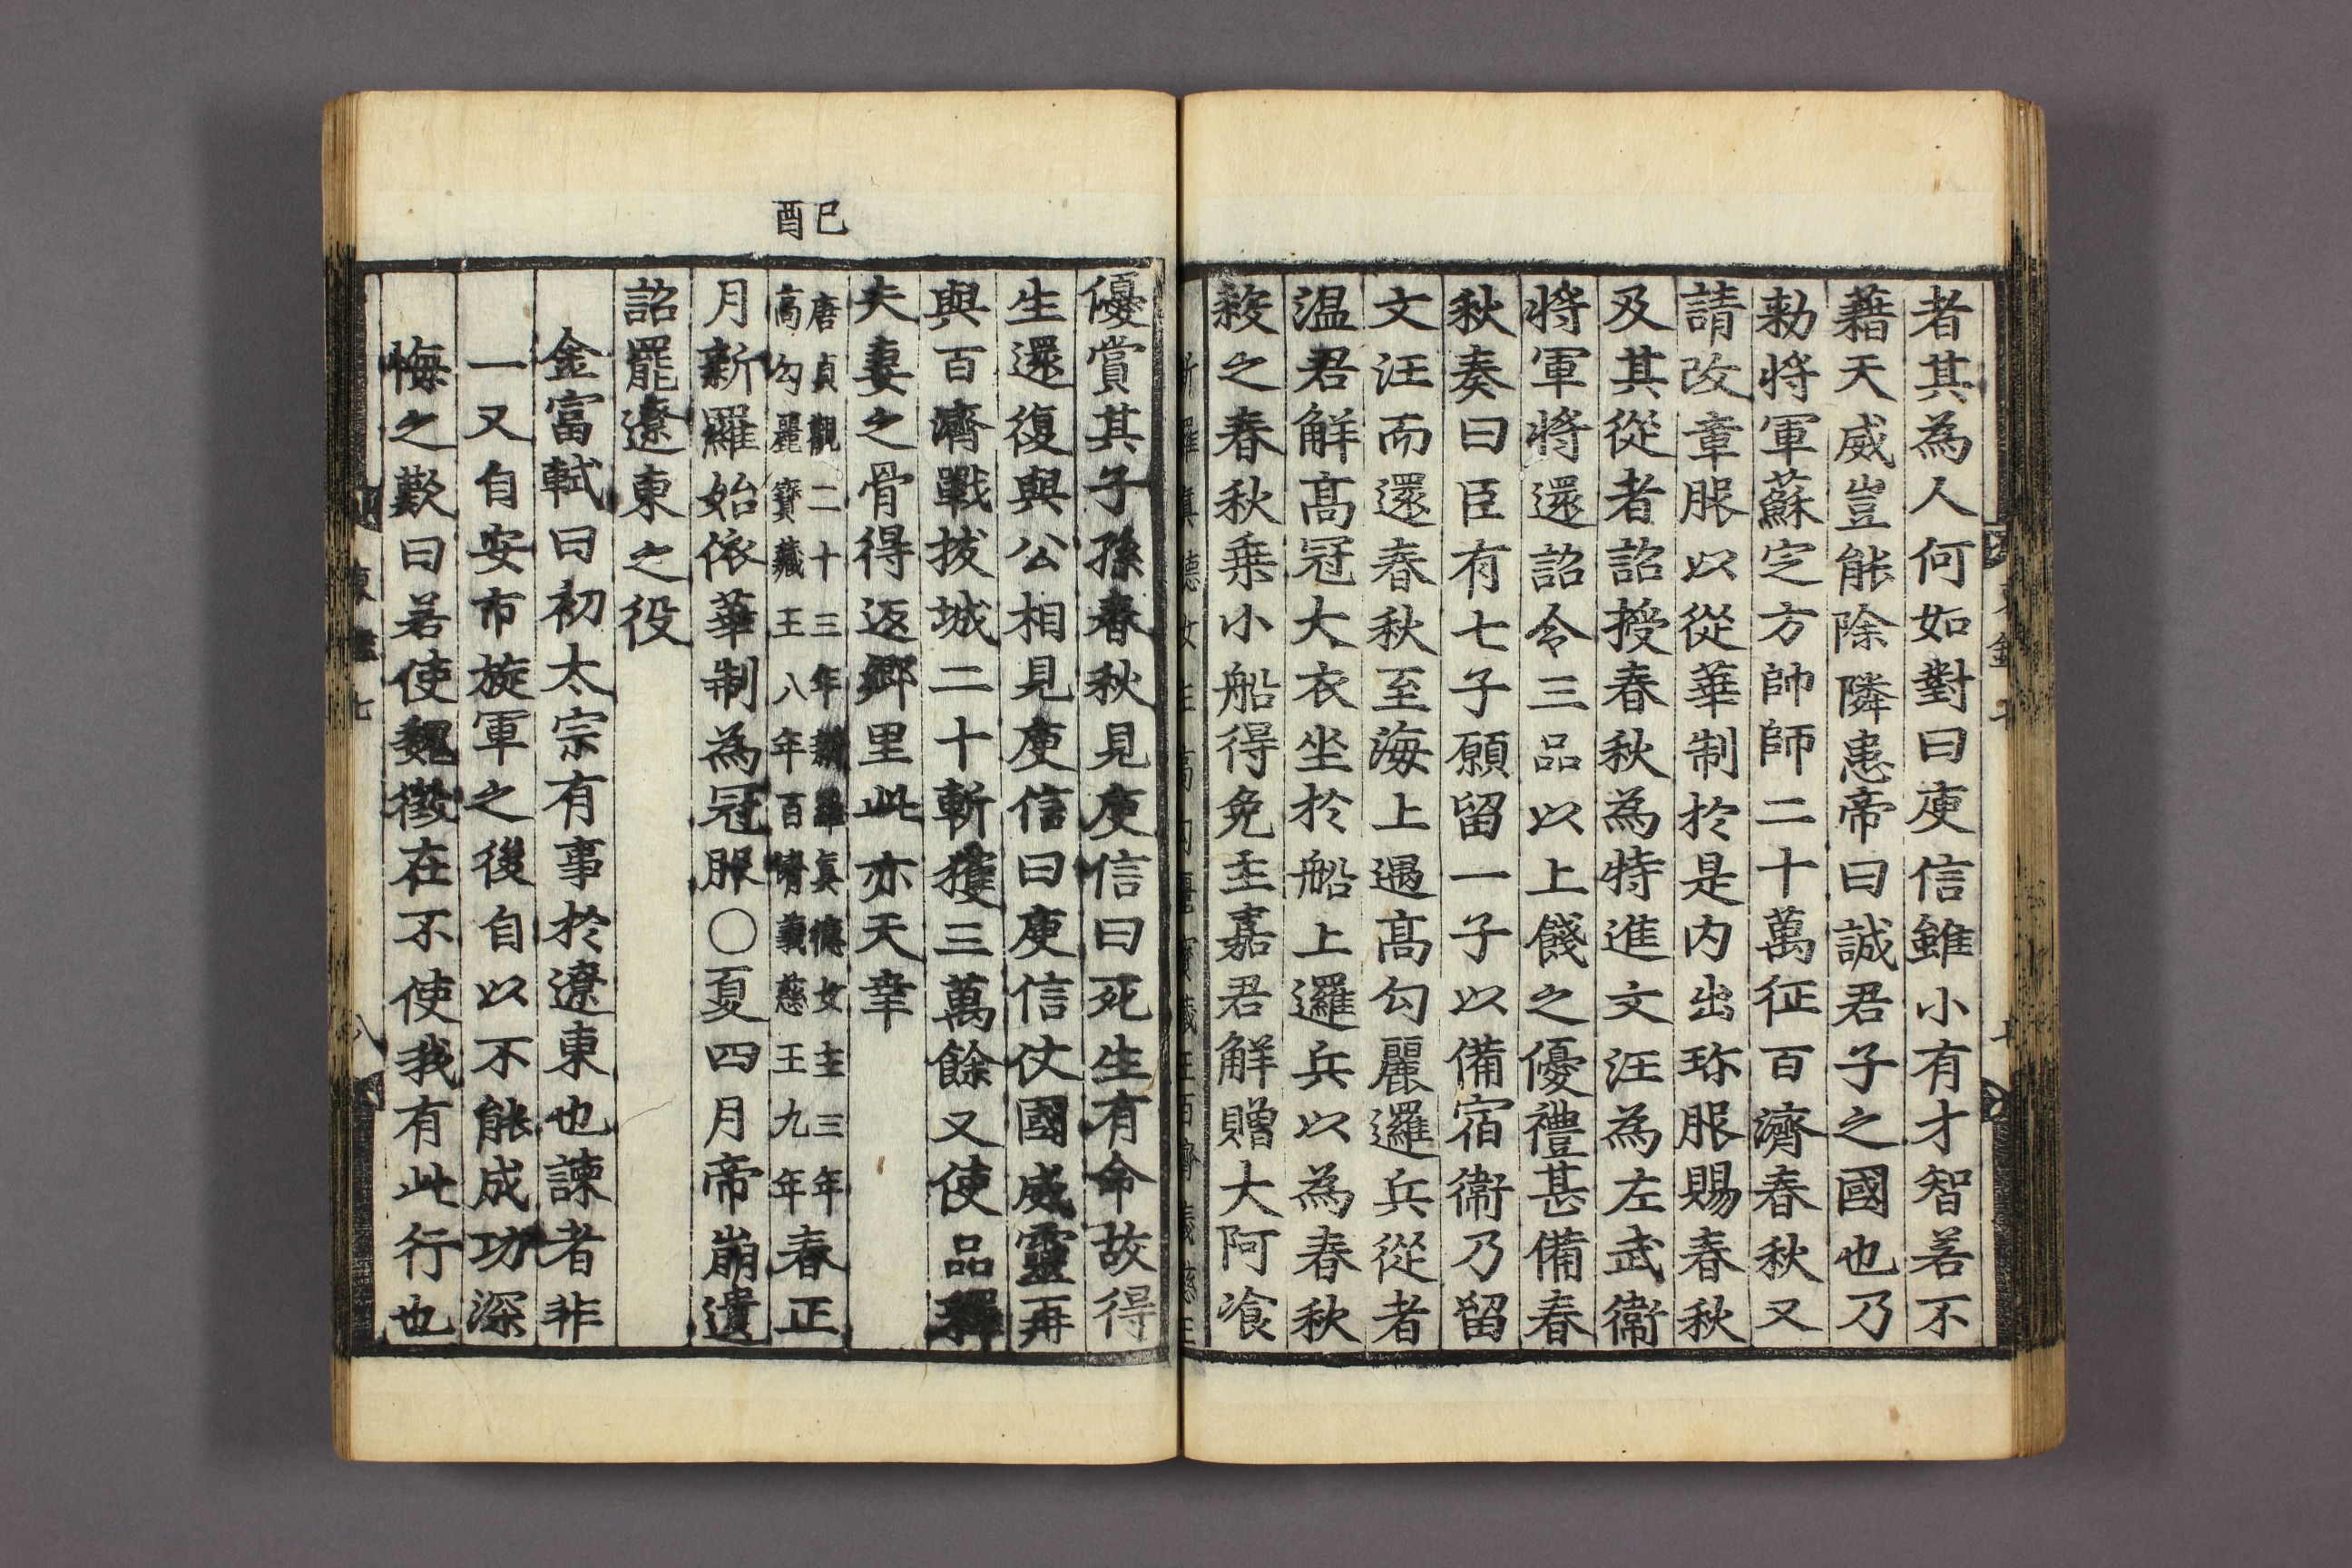 者其為人何如對曰庾信雖小有才智若不
藉天威豈能除隣患帝曰誠君子之國也乃
勅將軍蘇定方帥師二十萬征百濟春秋又
請改章服以從華制於是内出珎服賜春秋
及其從者詔授春秋為特進文汪為左武衞
將軍將還詔令三品以上餞之優禮甚備春
秋奏曰臣有七子願留一子以備宿衞乃留
文汪而還春秋至海上遇高勾麗邏兵從者
温君解高冠大衣坐於船上邏兵以為春秋
殺之春秋乗小船得免王嘉君解贈大阿飡
優賞其子孫春秋見庾信曰死生有命故得
生還復與公相見庾信曰庾信仗國威靈再
與百濟戰拔城二十斬獲三萬餘又使品釋
夫妻之骨得返鄉里此亦天幸
己酉
唐貞觀二十三年新羅真德女主三年
高勾麗寶藏王八年百濟義慈王九年
春正
月新羅始依華制為冠服〇夏四月帝崩遺
詔罷遼東之役
金富軾曰初太宗有事於遼東也諫者非
一又自安市旋軍之後自以不能成功深
悔之歎曰若使魏徵在不使我有此行也